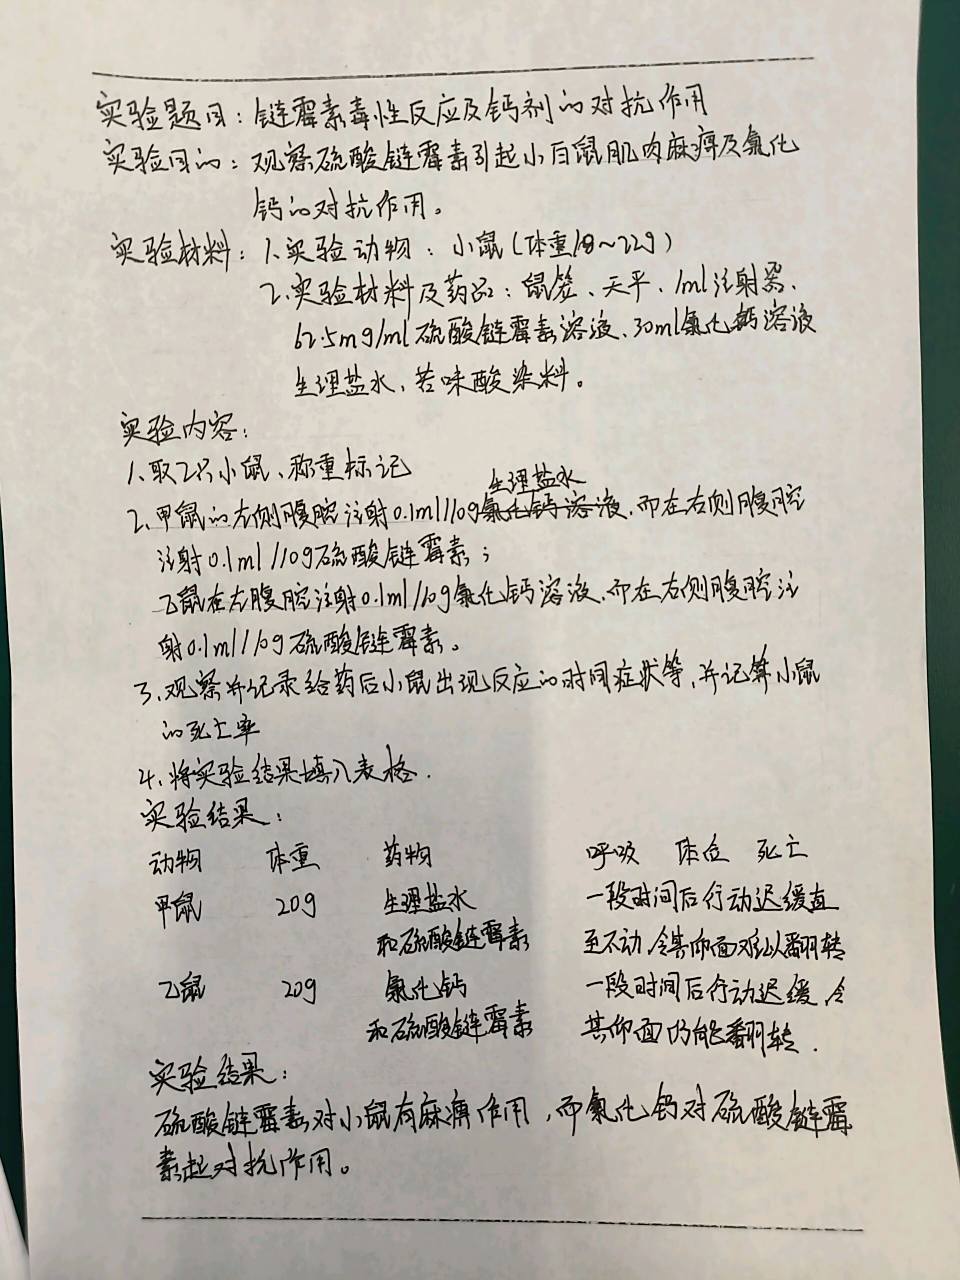 实验题目：链霉素毒性反应及钙剂的对抗作用
实验目的：观察硫酸链霉素引起小白鼠肌肉麻痹及氯化
钙的对抗作用。
实验材料：1.实验动物：小鼠（体重18~22g）
2.实验材料及药品：鼠笼、天平、1ml注射器、
62.5mg/ml硫酸链霉素溶液、30ml氯化钙溶液
生理盐水、苦味酸染料。
实验内容：
1.取2只小鼠、称重标记
生理盐水
2.甲鼠的左侧腹腔注射0.1ml/10g氯化钙溶液，而在右侧腹腔
注射0.1ml/10g硫酸链霉素；
乙鼠在左腹腔注射0.1ml/10g氯化钙溶液，而在右侧腹腔注
射0.1ml/10g硫酸链霉素。
3.观察并记录给药后小鼠出现反应的时间症状等，并记算小鼠
的死亡率
4.将实验结果填入表格.
实验结果：
动物 体重 药物 呼吸 体位 死亡
甲鼠 20g 生理盐水 一段时间后行动迟缓直
和硫酸链霉素 至不动，令其仰面难以翻转
乙鼠 20g 氯化钙 一段时间后行动迟缓，令
和硫酸链霉素 其仰面仍能翻转.
实验结果：
硫酸链霉素对小鼠有麻痹作用，而氯化钙对硫酸链霉
素起对抗作用。